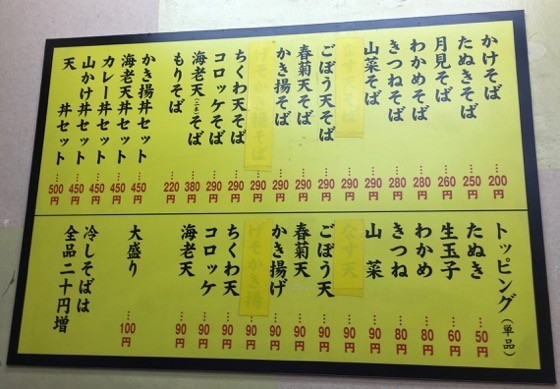 かけそば……200円
たぬきそば……250円
月見そば……260円
わかめそば……280円
きつねそば……280円
山菜そば……290円
なす天そば……290円
ごぼう天そば……290円
春菊天そば……290円
かき揚そば……290円
げそかき揚そば……290円
ちくわ天そば……290円
コロッケそば……290円
海老天(二本)そば……380円
もりそば……220円
かき揚丼セット……450円
海老天丼セット……450円
カレー丼セット……450円
山かけ丼セット……450円
天丼セット……500円
トッピング(単品)
たぬき……50円
生玉子……60円
わかめ……80円
きつね……80円
山菜……90円
なす天……90円
ごぼう天……90円
春菊天……90円
かき揚げ……90円
げそかき揚……90円
ちくわ天……90円
コロッケ……90円
海老天……90円
大盛り……100円
冷しそばは
全品二十円増